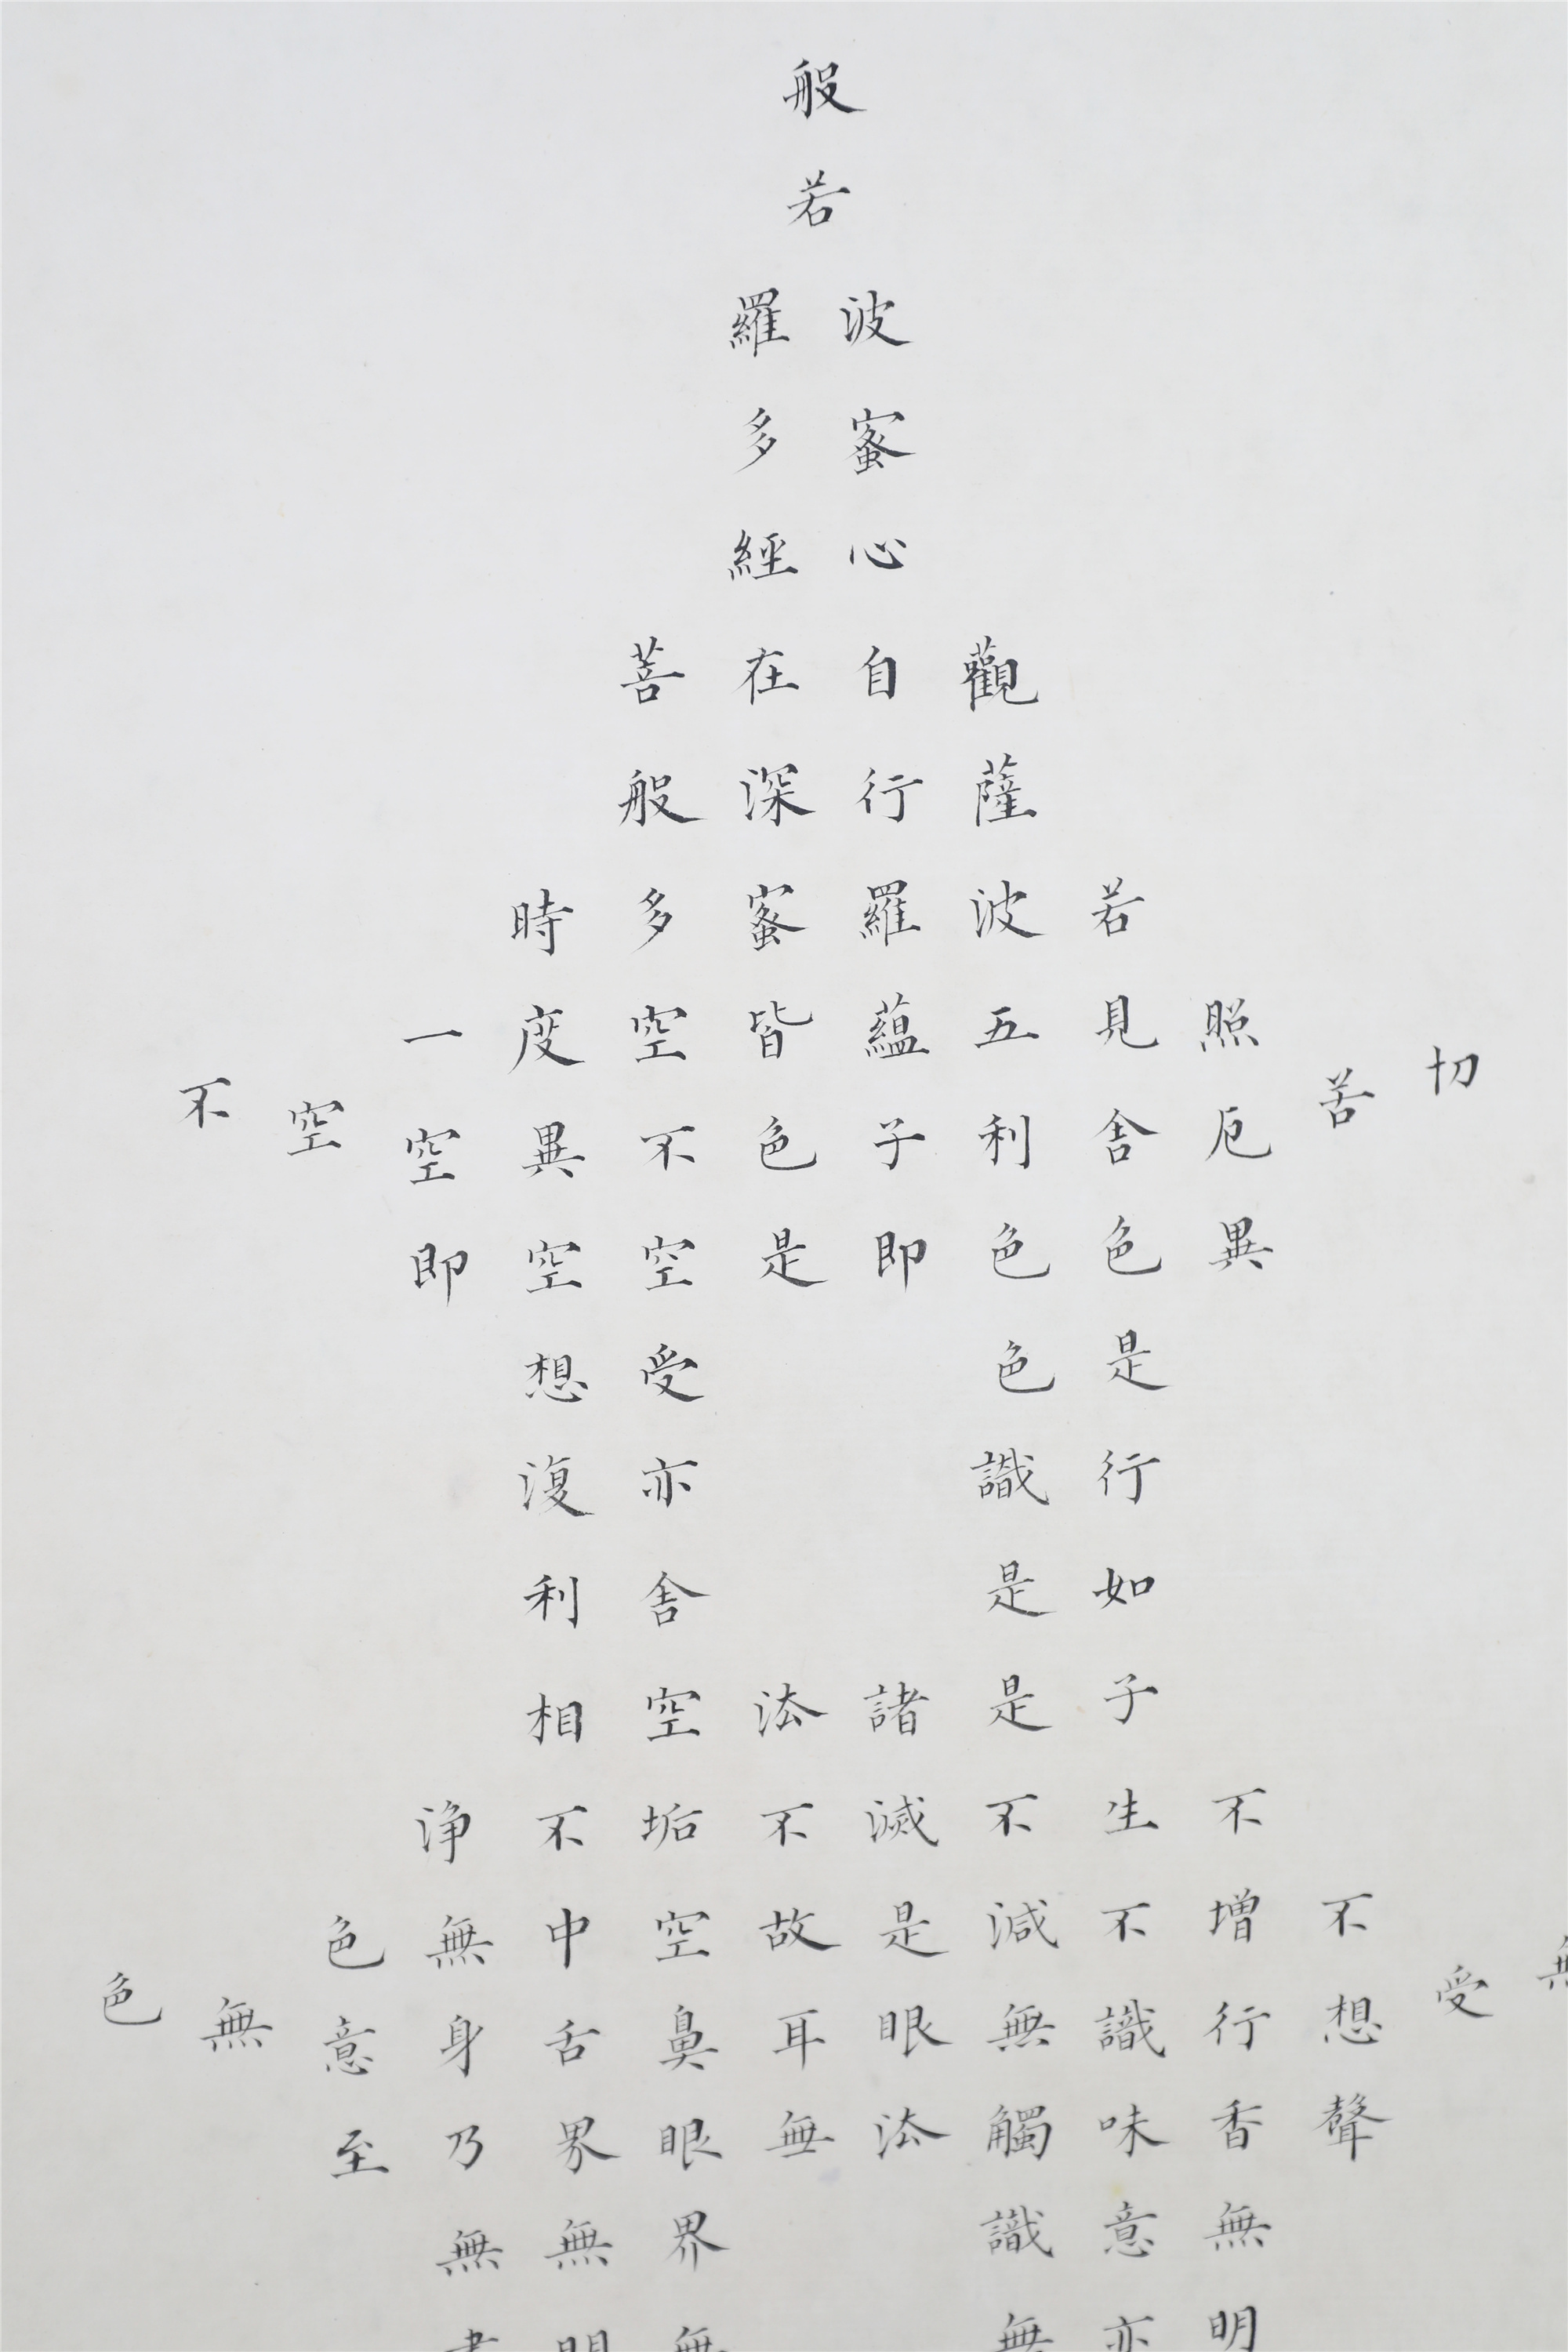 般
若
波羅
蜜多
心經
觀自在菩
薩行深般
若波羅蜜多時
照見五蘊皆空度一
切苦厄舍利子色不異空空不
異色色即是空空即
是色受想
行識亦復
如是舍利
子是諸法空相
不生不滅不垢不淨
不增不減是故空中無色
無受想行識無眼耳鼻舌身意無色
聲香味觸法無眼界乃至
無意識界無無
明亦無無明盡